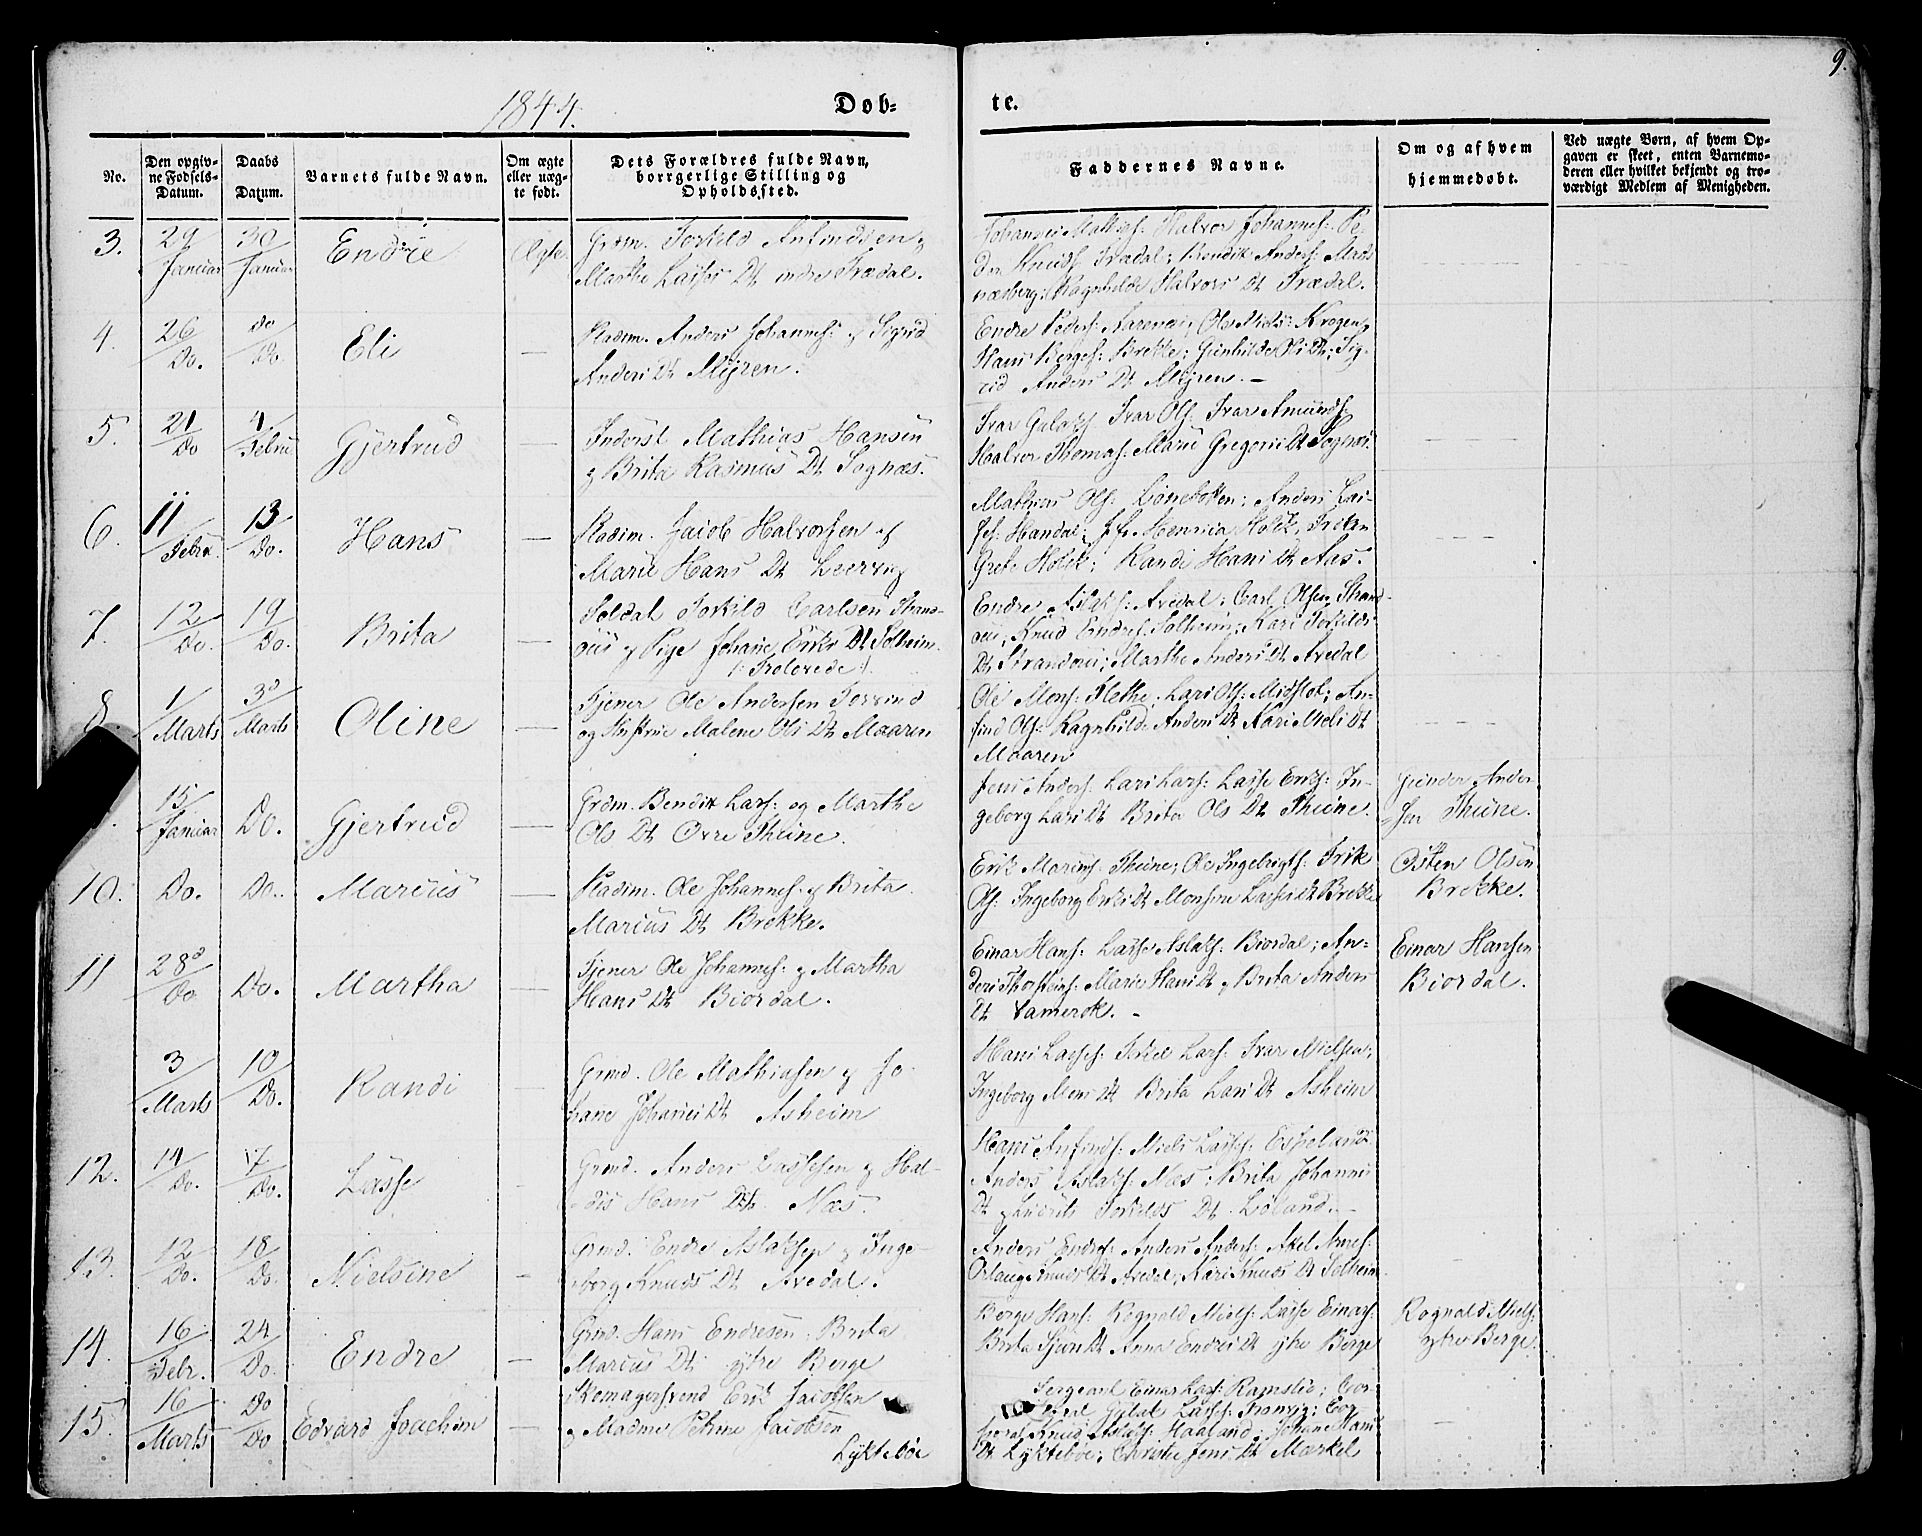 9.
1844.
Døb-
te.
No.
Den opgiv-
ne Fødsels-
Datum.
Daabs
Datum.
Barnets fulde Navn.
Om ægte
eller uæg-
te født.
Dets Forældres fulde Navn,
borrgerlige Stilling og
Opholdssted.
Faddernes Navne.
Om og af hvem
hjemmedøbt.
Ved uægte Børn, af hvem Op-
gaven er skeet, enten Barnemo-
deren eller hvilket bekjendt og tro-
værdigt Medlem af Menigheden.
3.
29
Januar
30
Januar
Endre
Ægte
Grdm. Torkild Anfindsen og
Marthe Lasses Dt indre Frædal.
Johannes Mathis: Halvor Johannes: Pe-
der Knuds: Frædal; Bendik Anders: Mads
Ragnhilde Halvors Dt Frædal.
4.
26
Do.
Do
Do
Eli
—
Pladsm. Anders Johannes: og Sigrid
Anders Dt Myren.
Endre Peders: Ole Niels: Krogen,
Hans Børges: Brekke; Gunhilde Oli Dt; Sig-
rid Anders Dt Myren. —
5.
21
Do
4
Febru
Gjertrud
—
Inderst Mathias Hansen
og Brita Rasmus Dt Sognæs.
Ivar Gulaks: Ivar Ols: Ivar Amunds:
Halvor Thomas: Marie Gregorii Dt Sognæs.
6.
11
Febru
13
Do.
Hans
—
Pladsm. Jacob Halvorsen og
Marie Hans Dt Leervig
Mathias Ols: Anders Las-
ses: Handal; Jfr. Henrica Holck, Frøken
Grete Holck; Randi Hans Dt Aas.
7.
12
Do.
19
Do.
Brita
—
Soldat Torkild Carlsen Strand-
øen og Pige Johane Eriks Dt Solheim.
/: Trolovede :/
Endre Aslaks: Avedal; Carl Olsen Strand-
øen; Knud Endres: Solheim; Kari Torkilds
Dt Strandøen; Marthe Anders Dt Avedal
8
1
Marts
3d
Marts
Oline
—
Tjener Ole Andersen Torvund
og Hustrue Malene Oli Dt Maaren
Ole Mons: Klethe; Lars Ols: Midstol; An-
find Ols: Ragnhilde Anders Dt Kari Niels Dt
Maaren
15
Januar
Do.
Gjertrud
—
Grdm. Bendix Lars: og Marthe
Ols Dt Øvre Thune.
Jens Anders: Lars Lars: Lasse Eriks: In-
geborg Lars Dt Brita Ols Dt Thune.
Gunder Ander-
sen Thune.
10.
Do.
Do.
Marcus
—
Pladsm. Ole Johannes: og Brita
Marcus Dt Brekke.
Erik Marcus: Thune; Ole Ingebrigts: Erik
Ols: Ingeborg Eriks Dt Monsine Lasses Dt Brekke
Osten Olsen
Brekke.
11
28d
Do
Do.
Martha
—
Tjener Ole Johannes: og Martha
Hans Dt Biordal.
Einar Hans: Lasse Aslaks: Biordal; An-
ders Thorsteins: Marie Hans Dt og Brita Anders
Dt Vamerok. —
Einar Hansen
Biordal.
3
Marts
10
Do.
Randi
—
Grmd. Ole Mathiasen og Jo-
hane Johannes Dt Asheim
Hans Lasses: Torkel Lars: Ivar Nielsen;
Ingeborg Mons Dt Brita Lars Dt Asheim
12.
14
Do.
17
Do.
Lasse
Grmd. Anders Lassesen og Hal-
dis Hans Dtr. Næs.
Hans Anfinds: Niels Lasses: Espeland
Anders Aslaks: Næs; Brita Johannes
Dt og Torkilds Dt Løland. —
13.
12
Do.
18
Do.
Nielsine
—
Grmd. Endre Aslaksen og Inge-
borg Knuds Dt Avedal.
Anders Endres: Anders Anders: Axel
Knuds Dt Avedal; Kari Knuds Dt Solheim
14
16
Febr.
24
Do.
Endre
—
Grmd. Hans Endresen; Brita
Marcus Dt ytre Berge
Børge Hans: Rognald Niels: Lasse Einars:
Brita Sjurs Dt Anna Endres Dt ytre Berge
Rognald Niels:
ytre Berge.
15.
16
Marts
Do
Do
Edvard Joachim
—
Skomagersvend Erik Jacobsen
og Madme Petrine Jacobsen
Lyktebøe
Sergeant Einar Lars: Ramslie; Cor-
Lasses: Cor-
poral Knud Aslaks: Haaland; Johane Hans
Dt Lyktebøe; Christie Jens Dt Mærkel